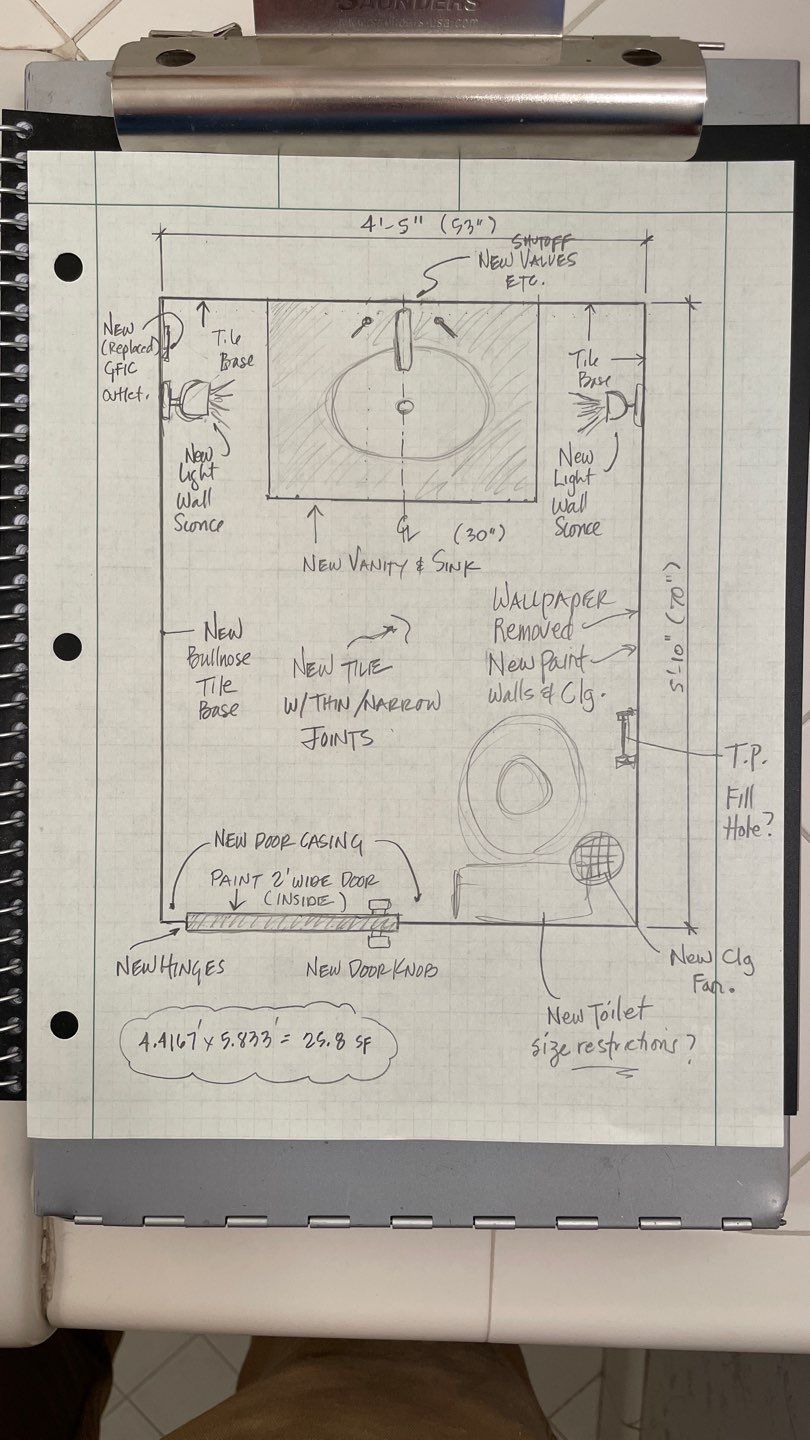 SAUNDERS
www.saunders-usa.com
4'-5" (53")
SHUTOFF
NEW VALVES
ETC.
NEW
(Replaced)
GFIC
outlet.
Tile
Base
Tile
Base
New
Light
Wall
Sconce
New
Light
Wall
Sconce
CL
(30")
NEW VANITY & SINK
5'-10" (70")
WALLPAPER
Removed
New Paint
Walls & Clg.
New
Bullnose
Tile
Base
NEW TILE
W/THIN/NARROW
JOINTS
T.P.
Fill
Hole?
NEW DOOR CASING
PAINT 2' WIDE DOOR
(INSIDE)
NEW HINGES
NEW DOOR KNOB
New Clg
Fan.
New Toilet
size restrictions?
4.4167' x 5.833' = 25.8 SF